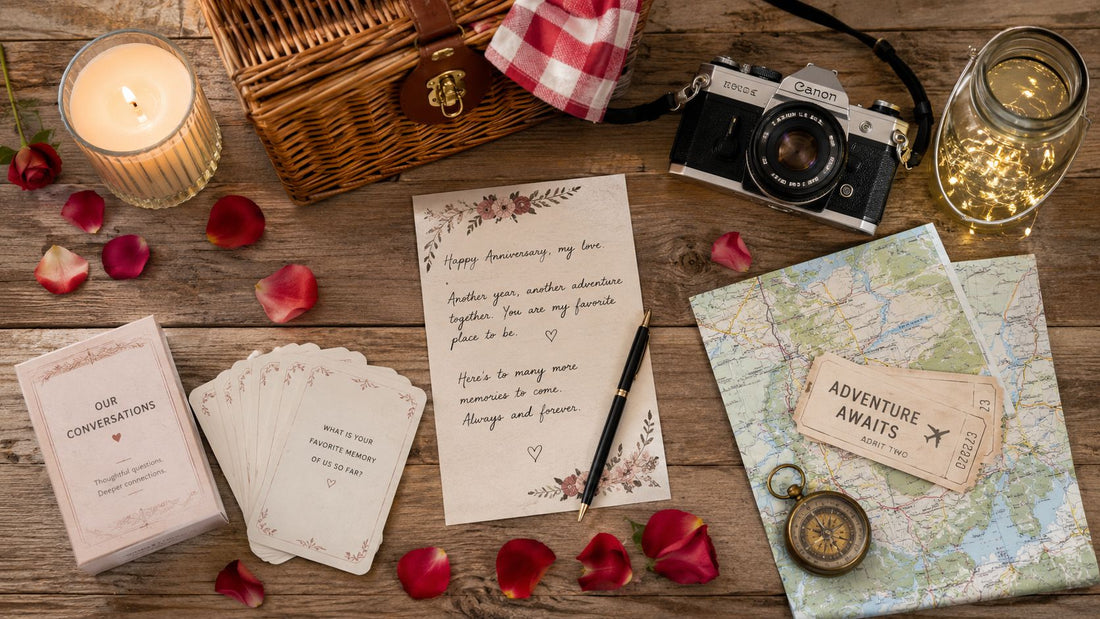 Canon
Happy Anniversary, my love.
Another year, another adventure
together. You are my favorite
place to be. ♡
Here's to many more
memories to come.
Always and forever.
♡
OUR
CONVERSATIONS
♥
Thoughtful questions.
Deeper connections.
WHAT IS YOUR
FAVORITE MEMORY
OF US SO FAR?
♡
ADVENTURE
AWAITS
ADMIT TWO